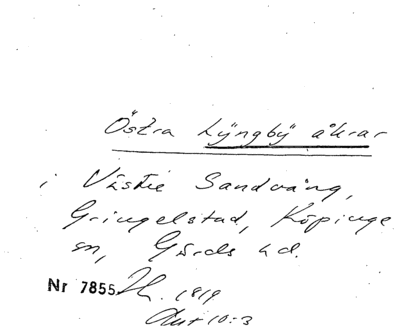 Östra Lÿngbÿ åkrar
i Västre Sandvång,
Gringelstad, Köpinge
sn, Gärds hd.
Nr 7855 Zk. 1819
Akt 10:3